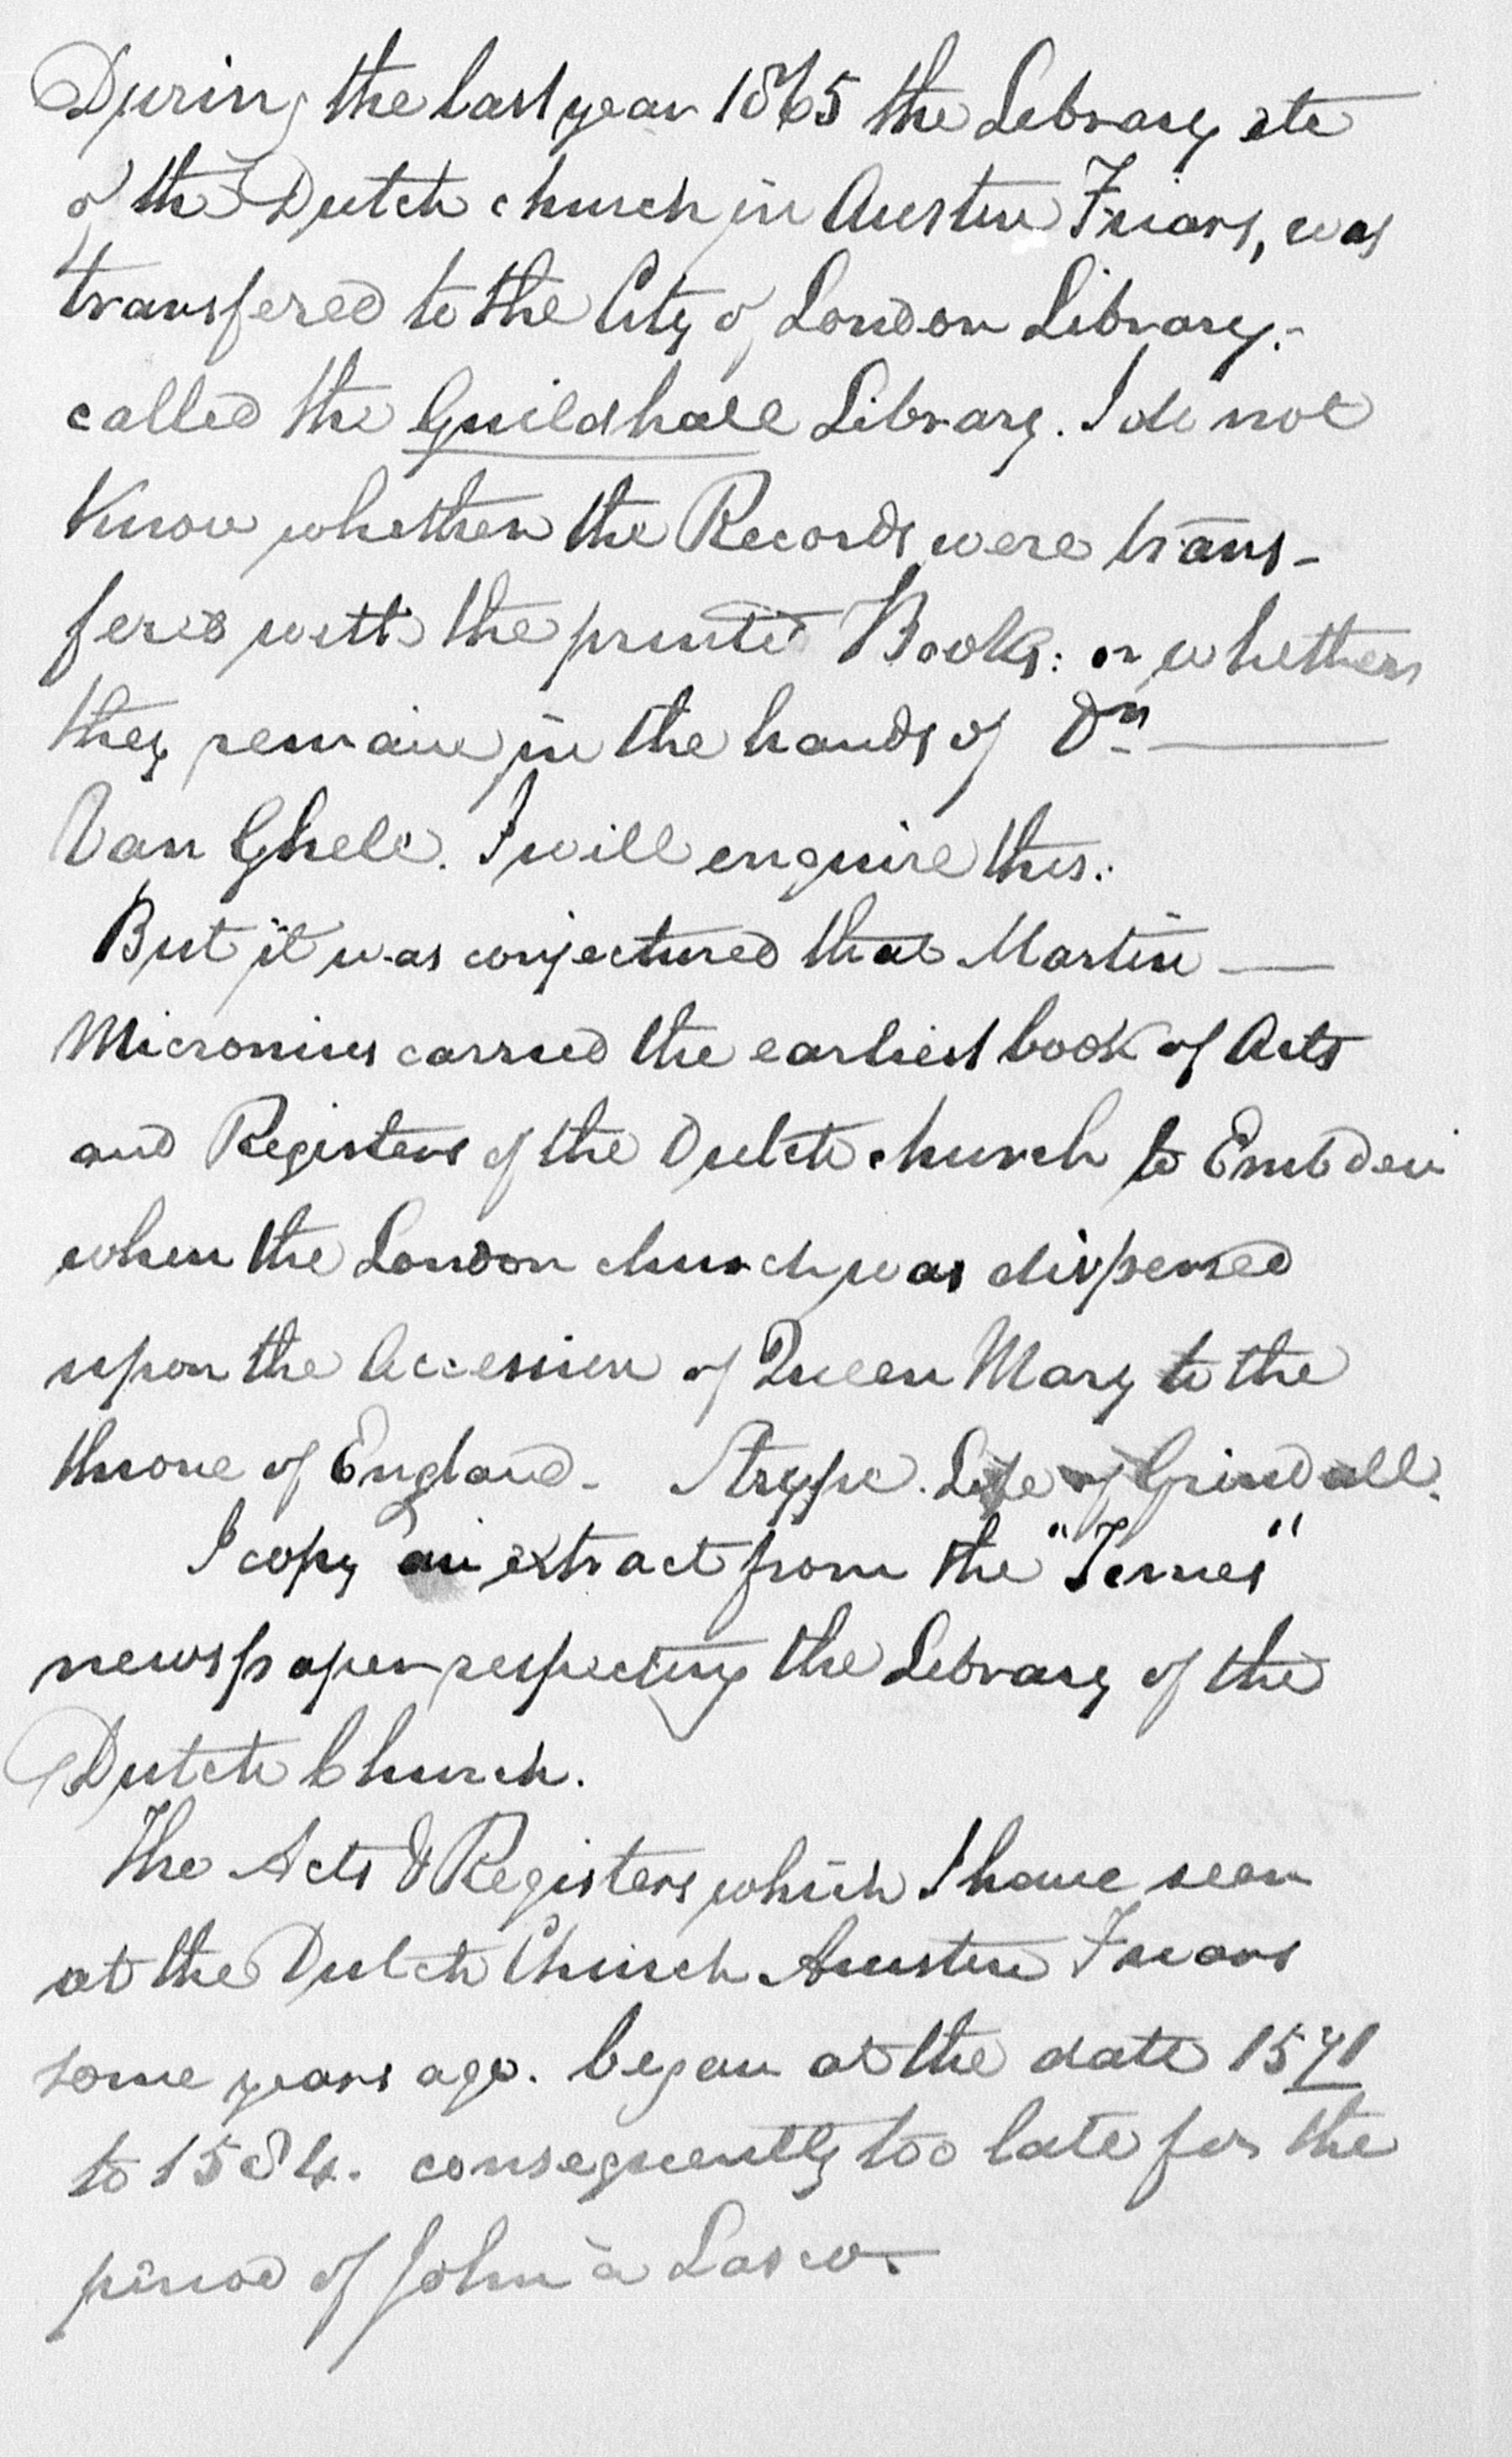 During the last year 1865 the Library etc
of the Dutch church in Austin Friars, was
transfered to the City of London Library.-
called the Guildhall Library. I do not
know whether the Records were trans-
fered with the printed Books: or whether
they remain in the hands of Dr. —
Van Ghele. I will enquire this.
But it was conjectured that Martin —
Micronius carried the earliest book of Acts
and Registers of the Dutch church to Embden
when the London church was dispersed
upon the Accession of Queen Mary to the
throne of England - Strype. Life of Grindall.
I copy an extract from the "Times"
newspaper respecting the Library of the
Dutch Church.
The Acts & Registers which I have seen
at the Dutch Church Austin Friars
some years ago. began at the date 1571
to 1584. consequently too late for the
period of John à Lasco.